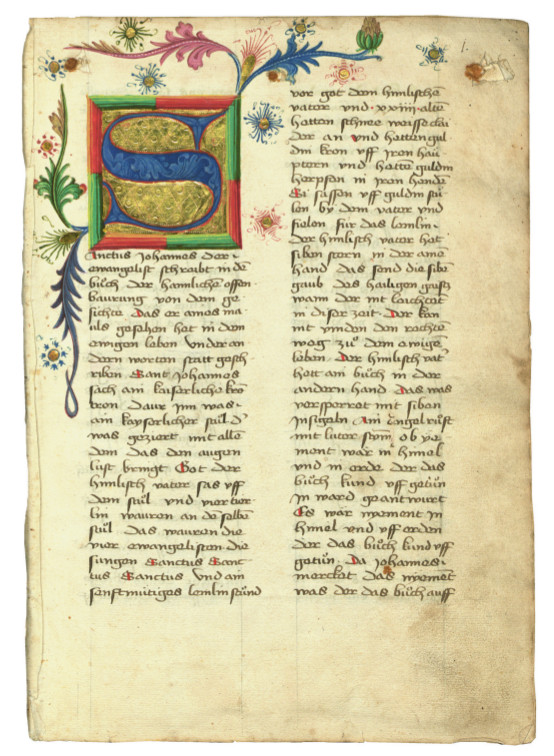 1.
Sanctus johannes der
ewangelist schraibt in dē
buͦch der haimlichē offen
baurung von dem ge
sichte Das er ains ma
uls gesehen hat in dem
ewigen leben Under an
dern worten statt gesch
riben Sant johannes
sach ain kaiserliche kro
tron daur jnn was
ain kayserlicher stuͦl d'
was geziert mit alle
dem das den augen
lust bringt Got der
himlisch vater sas vff
dem stuͦl vnd vier tier
lin wauren an de selbē
stuͦl das wauren die
vier ewangelisten die
sungen Sanctus Sanc
tus Sanctus Vnd ain
senftmuͤtiges lemlin stuͦnd
vor got dem himlischē
vater vnd xxiiii altē
hatten schnee weisse clai
der an vnd hatten gul
din kron vff jren hau
ptern vnd hattē guldin
herpfen in jren henden
Si sassen vff guldin stuͤ
len by dem vater vnd
fielen fuͤr das lemlin
der himlisch vater het
siben stern in der aine
hand das send die sibē
gaub des hailigen gaistz
wann der nit luichtet
in diser zeit der kan
nit vinden den rechten
weg zuͦ dem ewigē
leben Der himlisch vat'
hett ain buͦch in der
andern hand Das was
versperret mit siben
jnsigeln Ain engel ruͤft
mit luter stym ob ye
ment wär in himel
vnd in erde der das
buͦch kund vff getuͦn
jn ward geantwurt
Es wär nyement jn
himel vnd vff erden
der das buͦch kund vff
getuͦn Da johannes
mercket das nyement
was der das buͦch auff